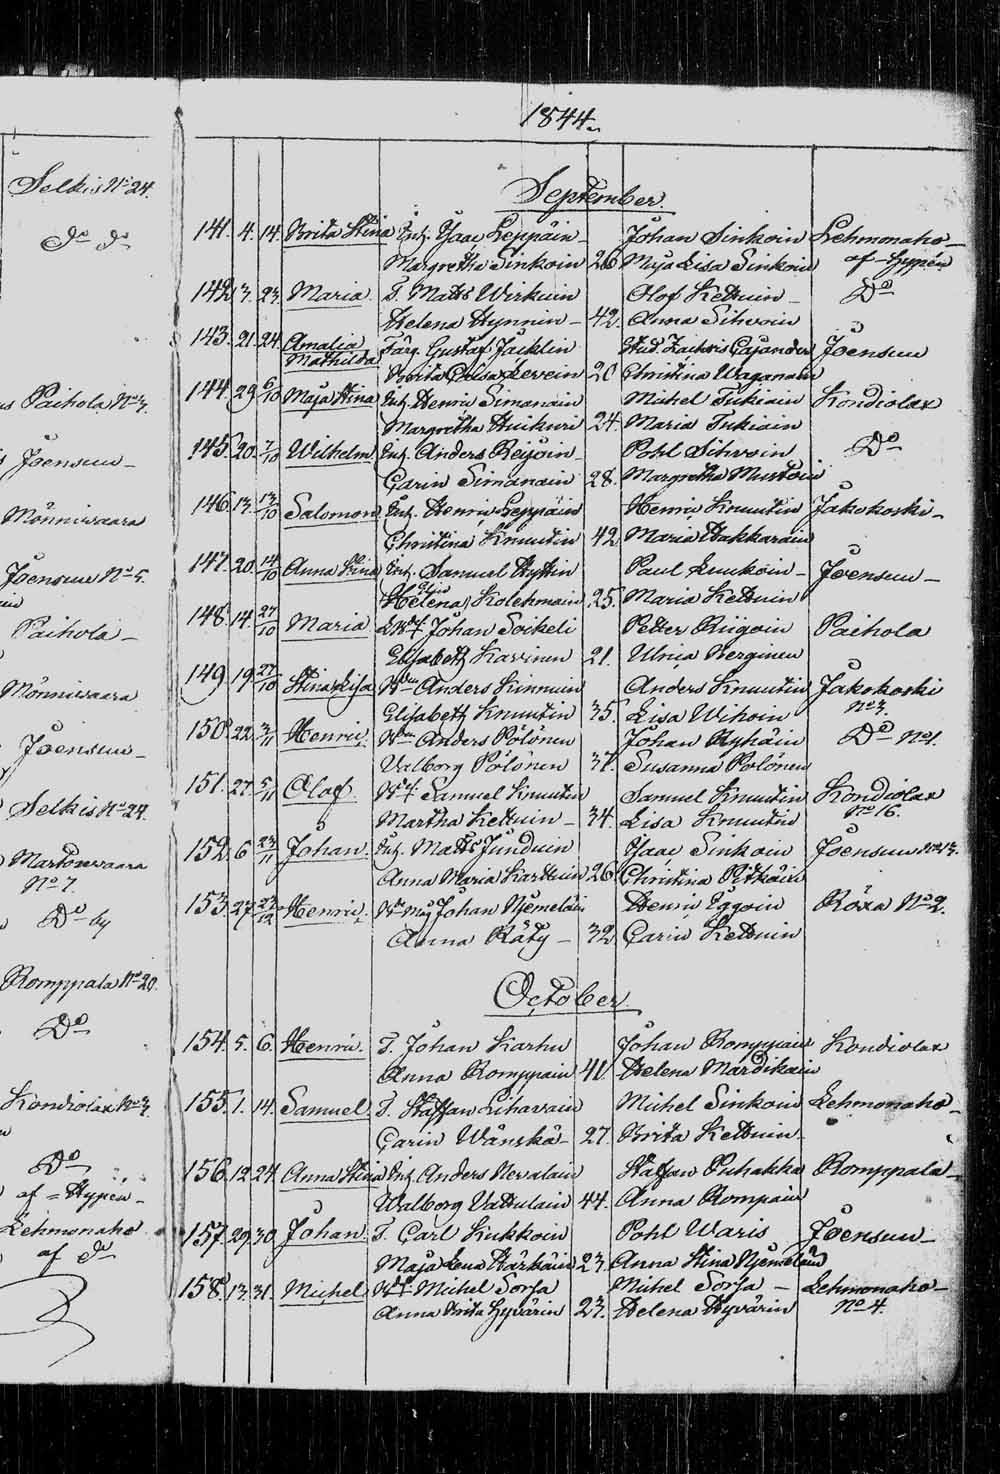 1844.
Selkis No 24.
Do Do
Paihola No 7.
Joensuu
Mönniwaara
Joensuu No 5.
Paihola
Mönniwaara
Joensuu
Selkis No 24.
Martonwaara
No 7.
Do by
Romppala No 20.
Do
Kondiolax No 3.
Do
af Hypen
Lehmonaho
af do
September
141. 4. 14. Brita Stina Inh. Isaac Leppäin Johan Sinkoin Lehmonaho
Margretha Sinkoin 26 Maja Lisa Sinkoin af Hypen
142 3. 23. Maria. T. Matts Wirkuin Olof Kettuin Do
Helena Hynnin 42. Anna Sihvoin
143. 21. 24. Amalia Färg. Gustaf Jäcklin Stud. Zachris Cajander Joensuu
Mathilda Brita Lovisa 20 Christina Waganain
144. 29 6/10 Maja Stina Inh. Henric Simanain Michel Tukiain Kondiolax
Margretha Huikuri 24. Maria Tukiain
145. 20. 7/10 Wilhelm. Inh. Anders Reijoin Pohl Sihvoin Do
Carin Simanain 28. Margretha Mustoin
146. 13. 13/10 Salomon Inh. Henric Leppäin Henric Knuutin Jakokoski
Christina Knuutin 42. Maria Hakkarain
147. 20. 14/10 Anna Stina Inh. Samuel Hyttin Paul Luukoin Joensuu
Helena Kolehmain 25. Maria Kettuin
148. 14. 27/10 Maria Johan Soikeli Petter Riigoin Paihola
Elisabeth Karvinen 21. Ulrica Kerginen
149 19 27/10 Stina Lisa Anders Kinnuin Anders Knuutin Jakokoski
Elisabeth Knuutin 35. Lisa Wihoin No 3.
150. 22. 3/11 Henric Anders Pölönen Johan Ryhäin Do No 1.
Valborg Pölönen 37. Susanna Pölönen
151. 27. 5/11 Olof. Samuel Knuutin Samuel Knuutin Kondiolax
Martha Kettuin 34. Lisa Knuutin No 16.
152. 6 23/11 Johan. Inh. Matts Junduin Isaac Sinkoin Joensuu No 13.
Anna Maria Karttuin 26 Christina Pitkäin
153. 27. 27/12 Henric. Johan Njemeläin Henric Eggoin Röxa No 2.
Anna Räty 32 Carin Kettuin
October
154. 5. 6. Henric. T. Johan Karhu Johan Romppain Kondiolax
Anna Romppain 41. Helena Mardikain
155. 1. 14. Samuel. T. Staffan Lihavain Michel Sinkoin Lehmonaho
Carin Wänskä 27. Brita Kettuin
156. 12. 24. Anna Stina Inh. Anders Nevalain Staffan Puhakka Romppala
Walborg Vattulain 44. Anna Rompain
157. 29. 30. Johan. T. Carl Kukkoin Pohl Waris Joensuu
Maja Lena Härkäin 23. Anna Stina Njemeläin
158. 13. 31. Michel Michel Sorsa Michel Sorsa Lehmonaho
Anna Brita Hyvärin 23. Helena Hyvärin No 4.